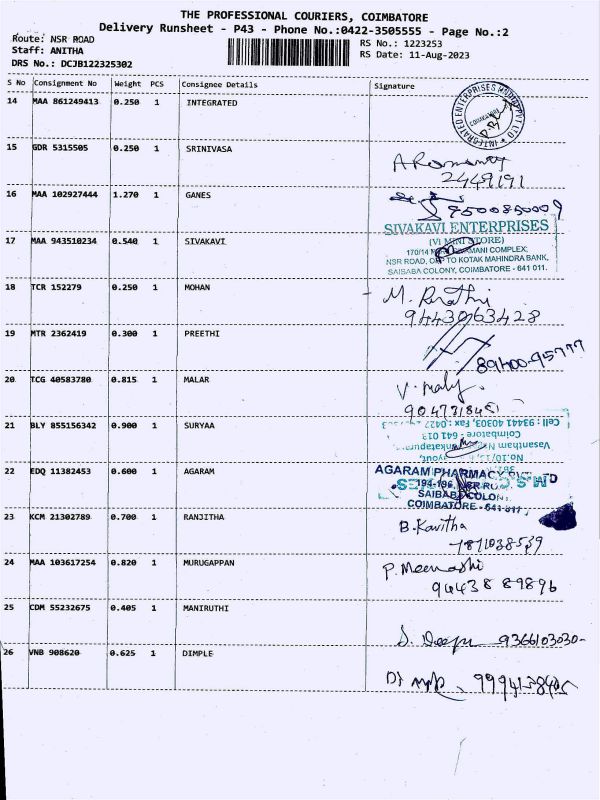 THE PROFESSIONAL COURIERS, COIMBATORE
Delivery Runsheet - P43 - Phone No.:0422-3505555 - Page No.:2
Route: NSR ROAD
Staff: ANITHA
DRS No.: DCJB122325302
RS No.: 1223253
RS Date: 11-Aug-2023
S No Consignment No Weight PCS Consignee Details Signature
14 MAA 861249413 0.250 1 INTEGRATED
INTEGRATED ENTERPRISES COIMBATORE
15 GDR 5315505 0.250 1 SRINIVASA
2449191
16 MAA 102927444 1.270 1 GANES
9500850009
SIVAKAVI ENTERPRISES
(VI MINI STORE)
17 MAA 943510234 0.540 1 SIVAKAVI
170/14 COMPLEX,
NSR ROAD, OPP TO KOTAK MAHINDRA BANK,
SAIBABA COLONY, COIMBATORE - 641 011.
18 TCR 152279 0.250 1 MOHAN
M.
9443063428
19 MTR 2362419 0.300 1 PREETHI
20 TCG 40583780 0.815 1 MALAR
V.
21 BLY 855156342 0.900 1 SURYAA
Cell : 93441 40303, Fax : 0422
Coimbatore - 641 013
Vasantham
No.10/
22 EDQ 11382453 0.600 1 AGARAM
AGARAM PHARMACY
194-196, NSR
SAIBABA COLON
COIMBATORE - 641 011
23 KCM 21302789 0.700 1 RANJITHA
B. Kavitha
24 MAA 103617254 0.820 1 MURUGAPPAN
P. Meenakshi
94438 89896
25 CDM 55232675 0.405 1 MANIRUTHI
S. Deepa 9366103030-
26 VNB 908620 0.625 1 DIMPLE